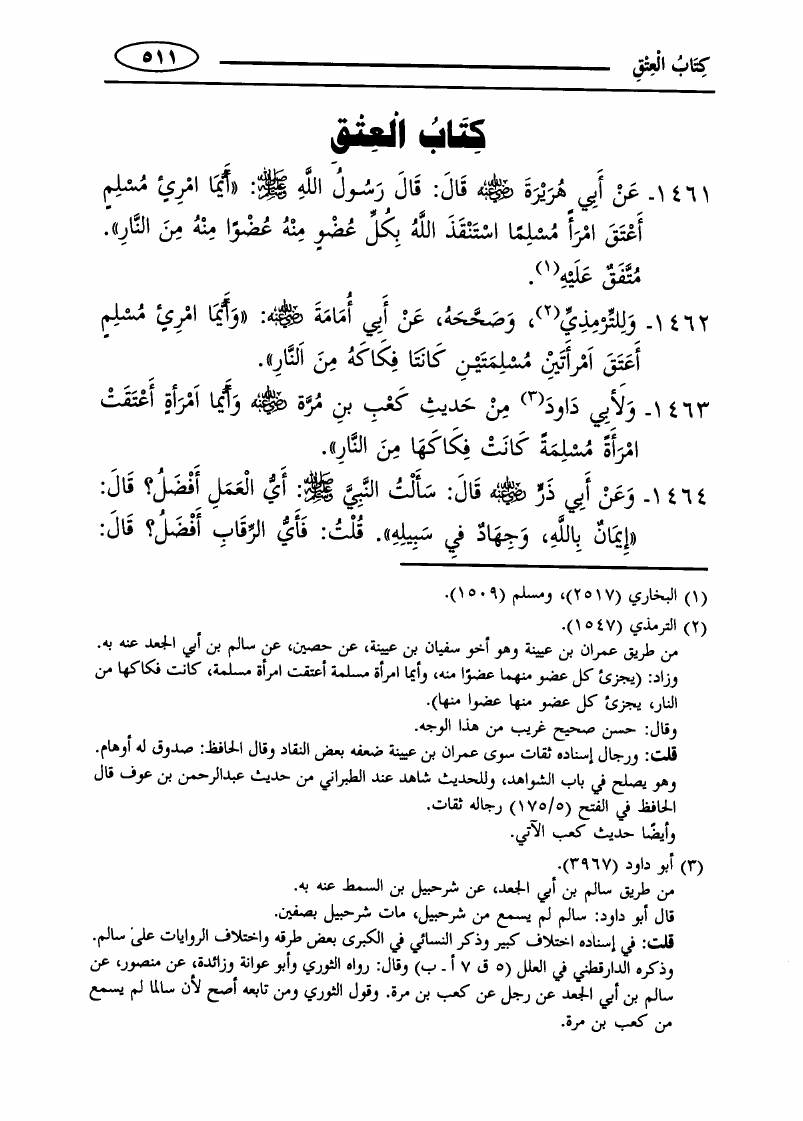 كِتَابُ الْعِتْقِ
٥١١
كِتَابُ الْعِتْقِ
١٤٦١ـ عَنْ أَبِي هُرَيْرَةَ رضي الله عنه قَالَ: قَالَ رَسُولُ اللَّهِ ﷺ: «أَيُّمَا امْرِئٍ مُسْلِمٍ
أَعْتَقَ امْرَأً مُسْلِمًا اسْتَنْقَذَ اللَّهُ بِكُلِّ عُضْوٍ مِنْهُ عُضْوًا مِنْهُ مِنَ النَّارِ».
مُتَّفَقٌ عَلَيْهِ(١).
١٤٦٢ـ وَلِلتِّرْمِذِيِّ(٢)، وَصَحَّحَهُ، عَنْ أَبِي أُمَامَةَ رضي الله عنه: «وَأَيُّمَا امْرِئٍ مُسْلِمٍ
أَعَتَقَ اَمْرأَتَيْنِ مُسْلِمَتَيْنِ كَانَتَا فِكَاكَهُ مِنَ اَلنَّارِ».
١٤٦٣ـ وَلأَبِي دَاودَ(٣) مِنْ حَديثِ كَعْبِ بنِ مُرَّة رضي الله عنه وَأَيُّما اَمْرَأةٍ أَعْتَقَتْ
امْرأَةً مُسْلِمَةً كَانَتْ فِكَاكَهَا مِنَ النَّارِ».
١٤٦٤ـ وَعَنْ أَبي ذَرٍّ رضي الله عنه قَالَ: سَأَلْتُ النَّبِيَّ ﷺ: أَيُّ الْعَمَلِ أَفْضَلُ؟ قَالَ:
«إِيمَانٌ بِاللَّهِ، وَجِهَادٌ في سَبِيلِهِ». قُلْتُ: فَأَيُّ الرِّقَابِ أَفْضَلُ؟ قَالَ:
(١) البخاري (٢٥١٧)، ومسلم (١٥٠٩).
(٢) الترمذي (١٥٤٧).
من طريق عمران بن عيينة وهو أخو سفيان بن عيينة، عن حصين، عن سالم بن أبي الجعد عنه به.
وزاد: (يجزئ كل عضو منهما عضوًا منه، وأيما امرأة مسلمة أعتقت امرأة مسلمة، كانت فكاكها من
النار، يجزئ كل عضو منها عضوا منها).
وقال: حسن صحيح غريب من هذا الوجه.
قلت: ورجال إسناده ثقات سوى عمران بن عيينة ضعفه بعض النقاد وقال الحافظ: صدوق له أوهام.
وهو يصلح في باب الشواهد، وللحديث شاهد عند الطبراني من حديث عبدالرحمن بن عوف قال
الحافظ في الفتح (١٧٥/٥) رجاله ثقات.
وأيضًا حديث كعب الآتي.
(٣) أبو داود (٣٩٦٧).
من طريق سالم بن أبي الجعد، عن شرحبيل بن السمط عنه به.
قال أبو داود: سالم لم يسمع من شرحبيل، مات شرحبيل بصفين.
قلت: في إسناده اختلاف كبير وذكر النسائي في الكبرى بعض طرقه واختلاف الروايات على سالم.
وذكره الدارقطني في العلل (٥ ق ٧ أ ـ ب) وقال: رواه الثوري وأبو عوانة وزائدة، عن منصور، عن
سالم بن أبي الجعد عن رجل عن كعب بن مرة. وقول الثوري ومن تابعه أصح لأن سالما لم يسمع
من كعب بن مرة.